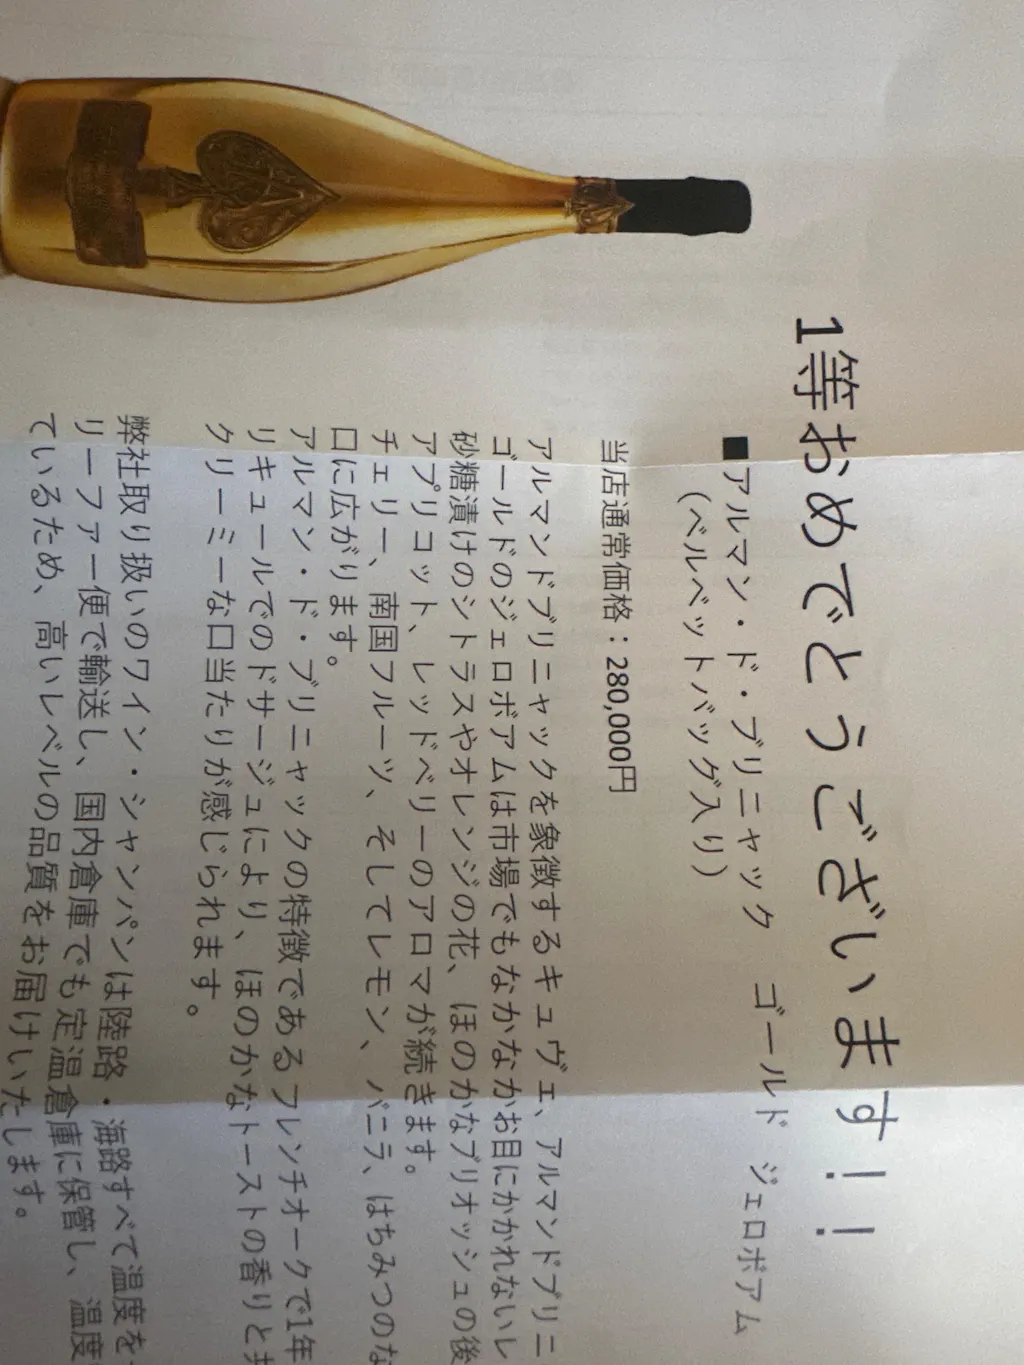 1等おめでとうございます！！
■アルマン・ド・ブリニャック　ゴールド　ジェロボアム
（ベルベットバッグ入り）
当店通常価格：280,000円
アルマンドブリニャックを象徴するキュヴェ、アルマンドブリニ
ゴールドのジェロボアムは市場でもなかなかお目にかかれないレ
砂糖漬けのシトラスやオレンジの花、ほのかなブリオッシュの後
アプリコット、レッドベリーのアロマが続きます。
チェリー、南国フルーツ、そしてレモン、バニラ、はちみつのな
口に広がります。
アルマン・ド・ブリニャックの特徴であるフレンチオークで1年
リキュールでのドサージュにより、ほのかなトーストの香りと
クリーミーな口当たりが感じられます。
弊社取り扱いのワイン・シャンパンは陸路・海路すべて温度を
リーファー便で輸送し、国内倉庫でも定温倉庫に保管し、温度
ているため、高いレベルの品質をお届けいたします。